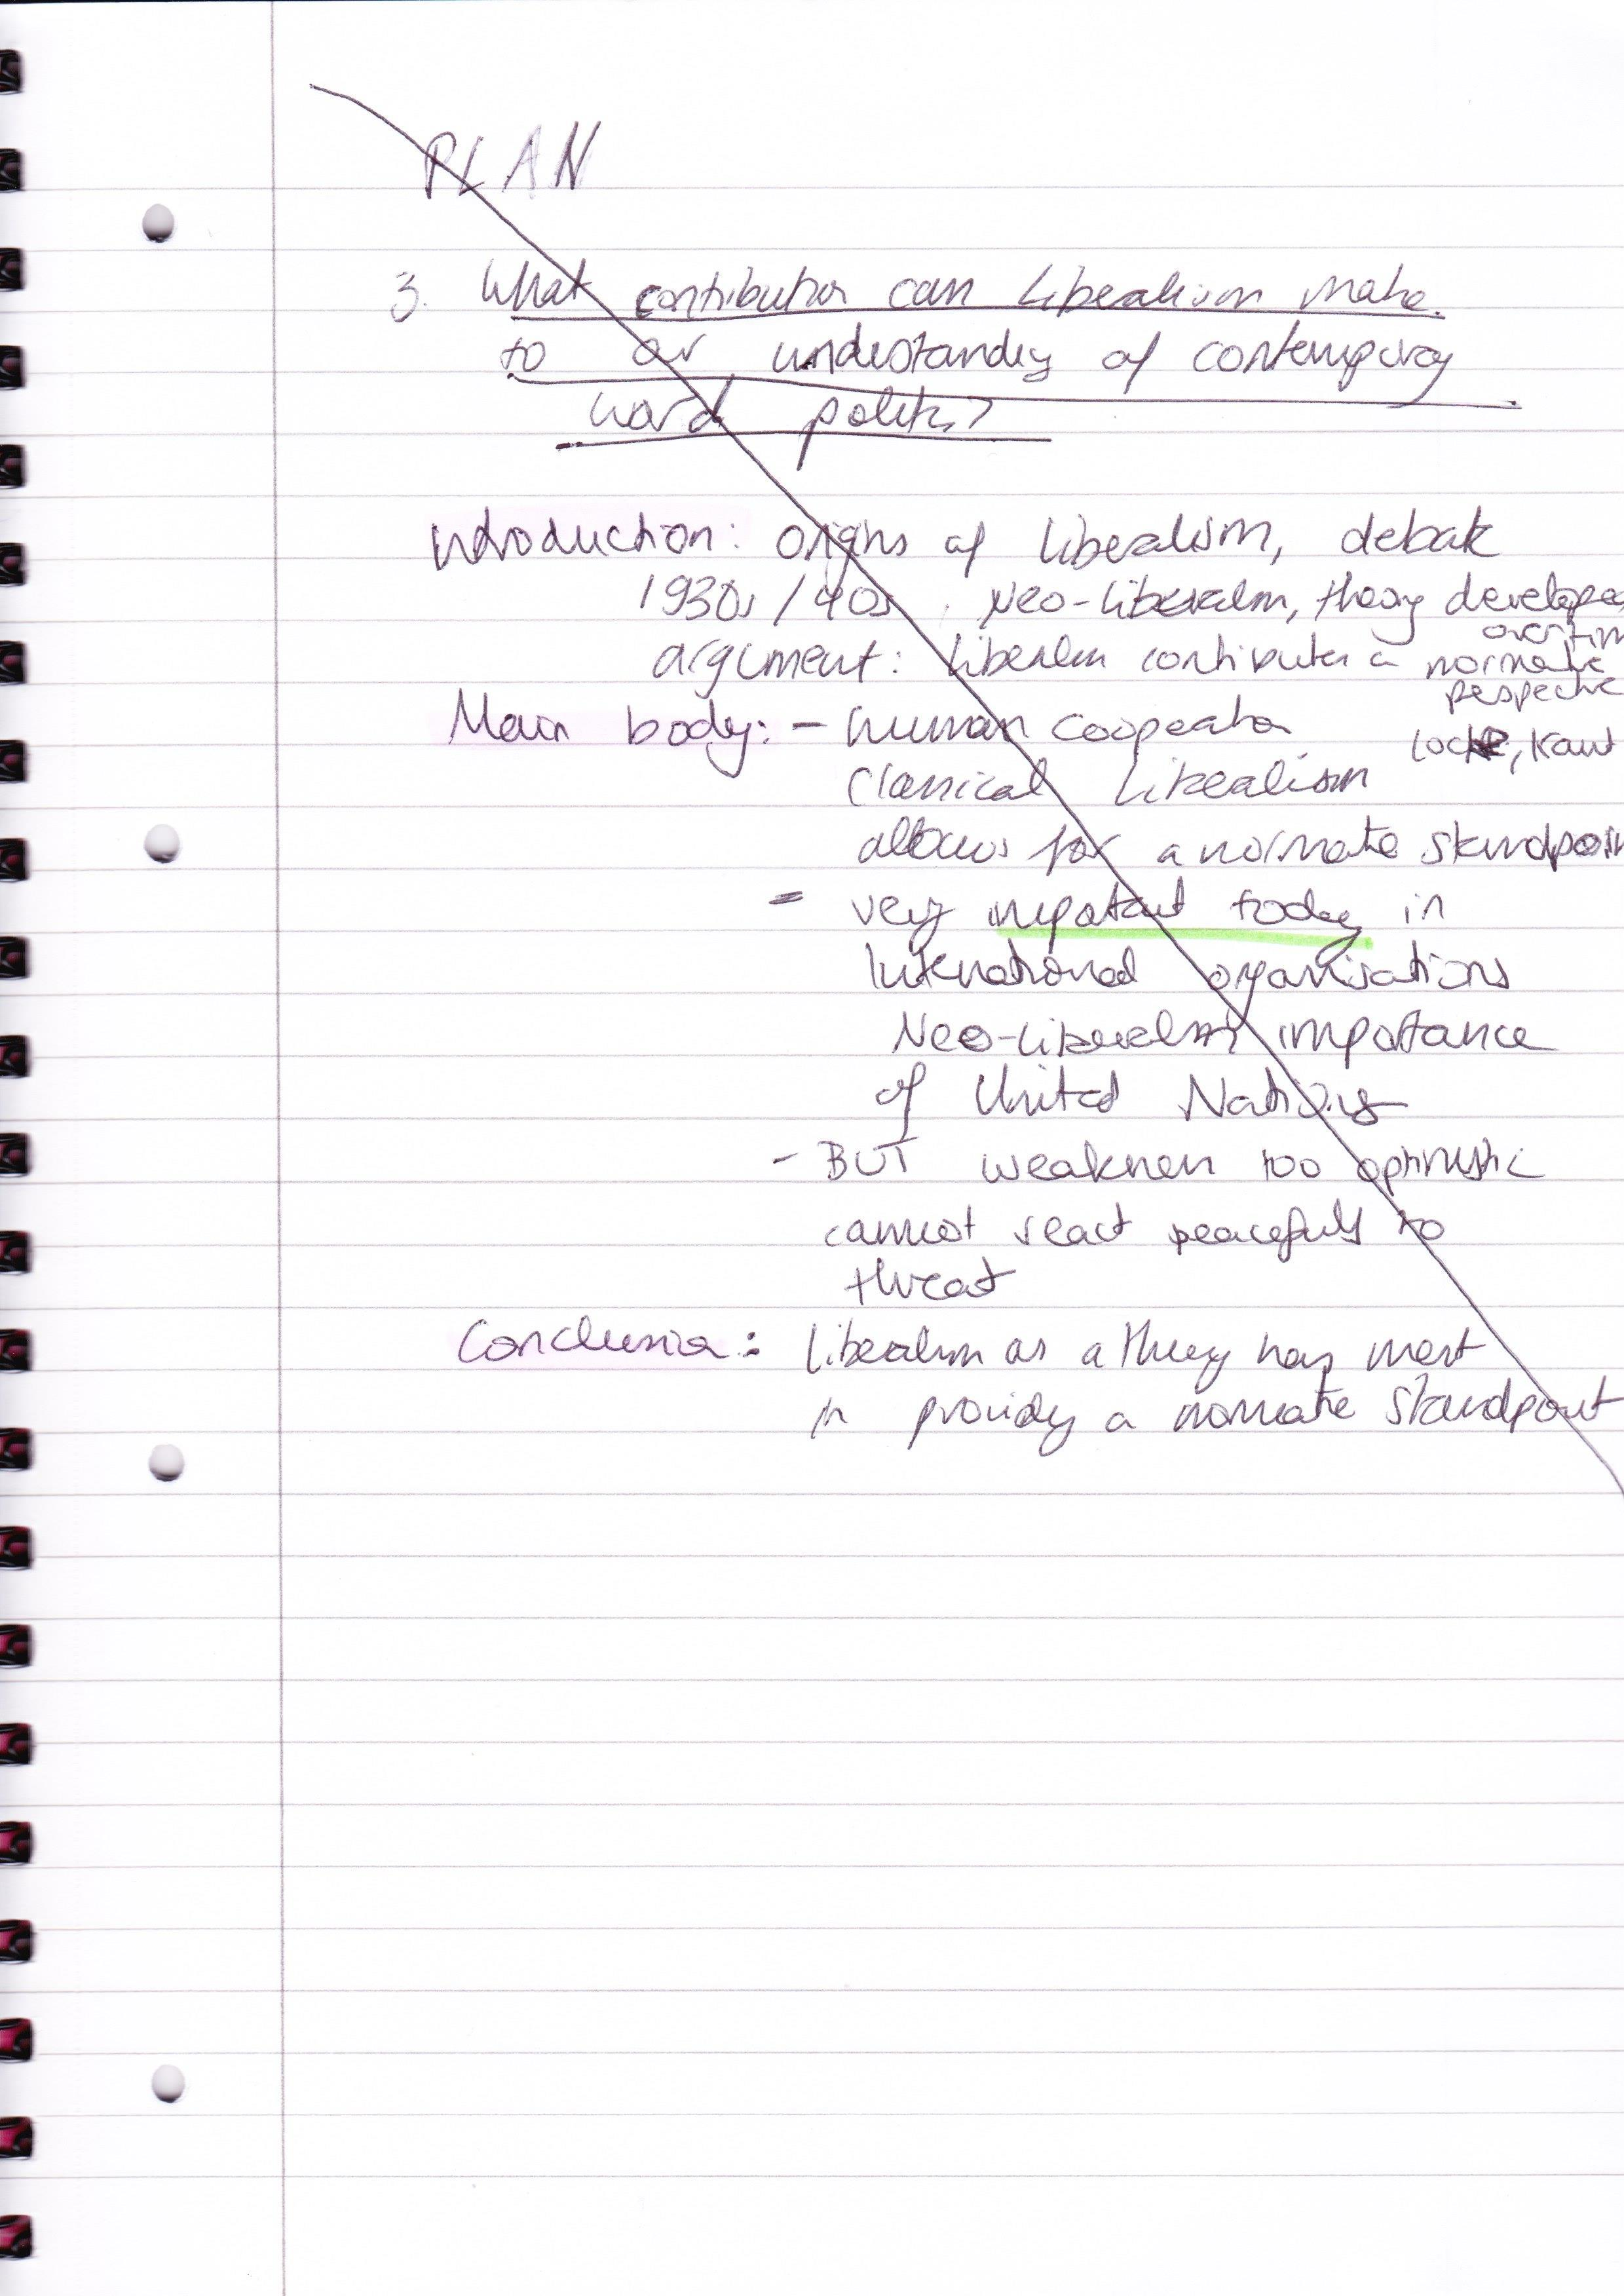 PLAN
3. What contribution can Liberalism make
to our understanding of contemporary
world politics?
Introduction: Origins of liberalism, debate
1930s / 40s, Neo-Liberalism, theory developed
over time
argument: Liberalism contributes a normative
perspective
Main body: - human cooperation Locke, Kant
Classical Liberalism
allows for a normative standpoint
= very important today in
International organisations
Neo-Liberalism importance
of United Nations
- BUT weakness too optimistic
cannot react peacefully to
threat
Conclusion: Liberalism as a theory has merit
in providing a normative standpoint